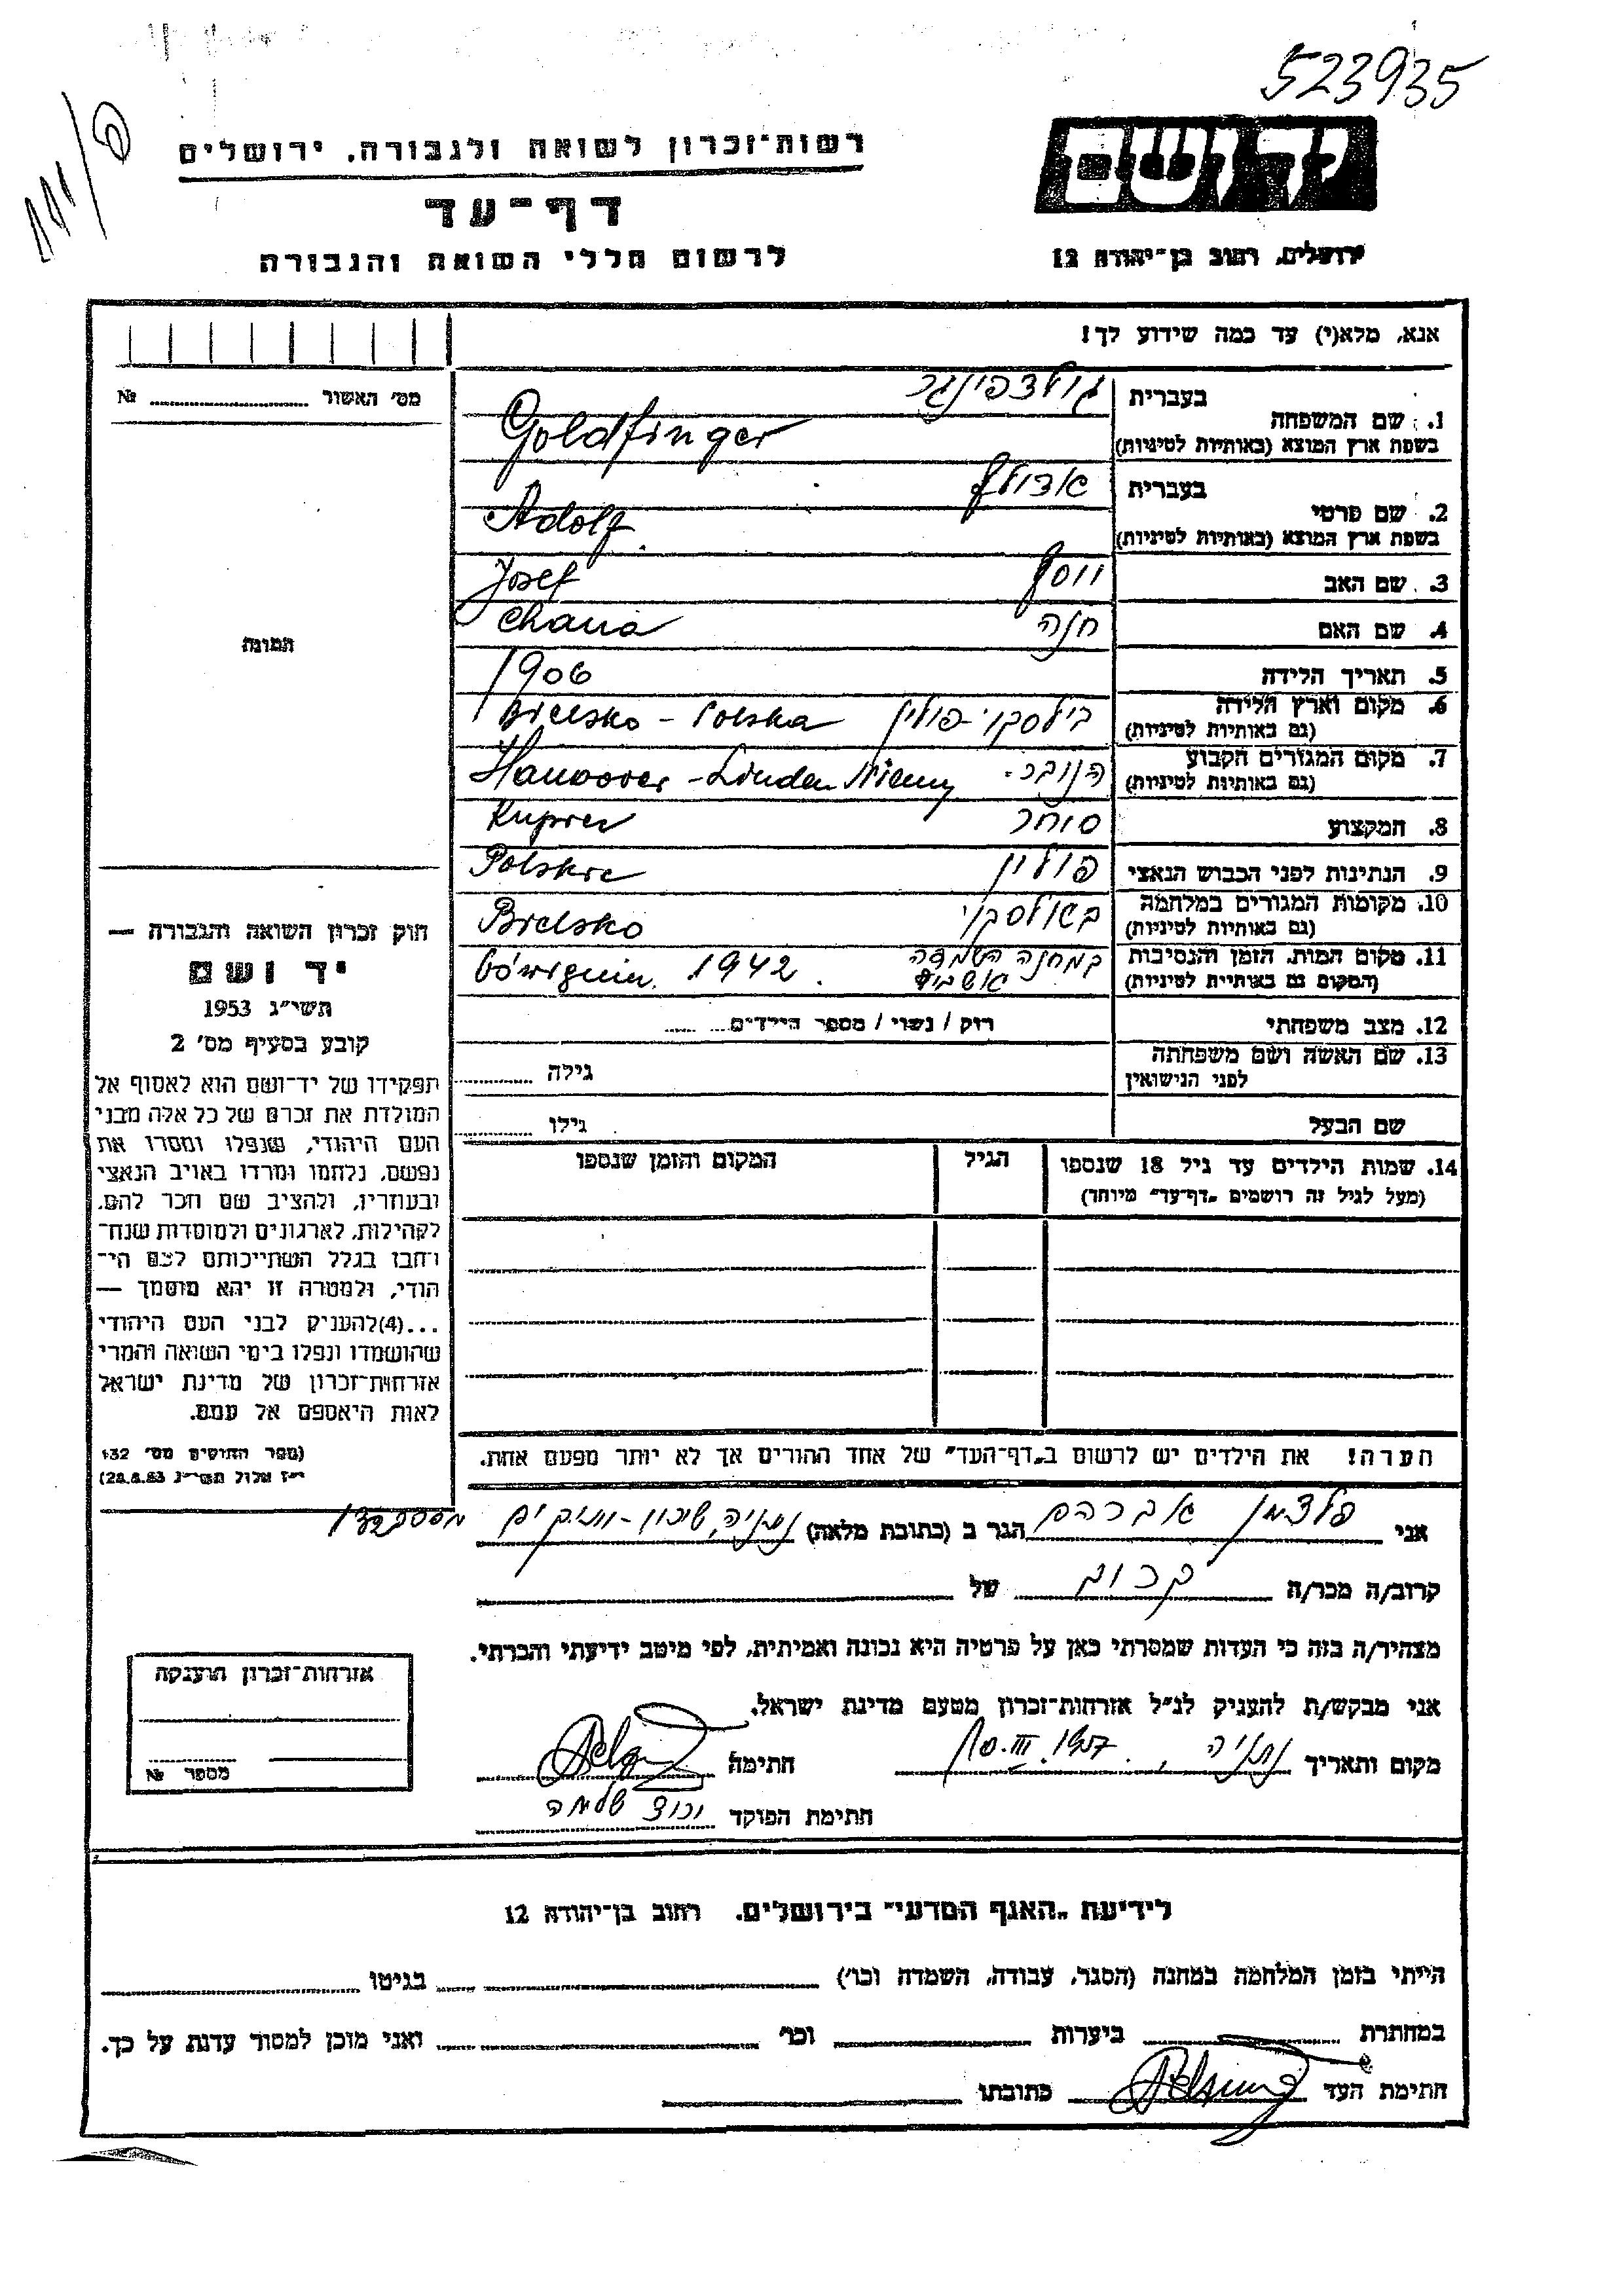 523935
רשות־זכרון לשואה ולגבורה, ירושלים
יד ושם
דף־עד
לרשום חללי השואה והגבורה
ירושלים, רחוב בן־יהודה 12
אנא, מלא(י) עד כמה שידוע לך!
מס׳ האשור № 
1. שם המשפחה
בעברית גולדפינגר
בשפת ארץ המוצא (באותיות לטיניות) Goldfinger
2. שם פרטי
בעברית אדולף
בשפת ארץ המוצא (באותיות לטיניות) Adolf
3. שם האב יוסף Josef
4. שם האם חנה Chana
תמונה
5. תאריך הלידה 1906
6. מקום וארץ הלידה
(גם באותיות לטיניות) בילסקו־פולין Bielsko - Polska
7. מקום המגורים הקבוע
(גם באותיות לטיניות) הנובר Hannover - Linden Niemcy
8. המקצוע סוחר Kupiec
9. הנתינות לפני הכבוש הנאצי פולין Polskie
10. מקומות המגורים במלחמה
(גם באותיות לטיניות) Bielsko
11. מקום המות, הזמן והנסיבות
(המקום גם באותיות לטיניות) במחנה השמדה 1942
12. מצב משפחתי רוק / נשוי / מספר הילדים
13. שם האשה ושם משפחתה
לפני הנישואין גילה
שם הבעל גילו
14. שמות הילדים עד גיל 18 שנספו
(מעל לגיל זה רושמים „דף־עד" מיוחד)
הגיל
המקום והזמן שנספו
חוק זכרון השואה והגבורה —
יד ושם
תשי״ג 1953
קובע בסעיף מס׳ 2
תפקידו של יד־ושם הוא לאסוף אל
המולדת את זכרם של כל אלה מבני
העם היהודי, שנפלו ומסרו את
נפשם, נלחמו ומרדו באויב הנאצי
ובעוזריו, ולהציב שם וזכר להם,
לקהילות, לארגונים ולמוסדות שנח־
רחבו בגלל השתייכותם לעם הי־
הודי, ולמטרה זו יהא מוסמך —
...(4)להעניק לבני העם היהודי
שהושמדו ונפלו בימי השואה והמרי
אזרחות־זכרון של מדינת ישראל
לאות היאספם אל עמם.
(ספר החוקים מס׳ 132
י״ז אלול תשי״ג 28.8.53)
הערה! את הילדים יש לרשום ב„דף־העד" של אחד ההורים אך לא יותר מפעם אחת.
אני פלדמן אברהם הגר ב (כתובת מלאה) נתניה, שיכון־ותיקים
קרוב/ה מכר/ה קרוב של
מצהיר/ה בזה כי העדות שמסרתי כאן על פרטיה היא נכונה ואמיתית, לפי מיטב ידיעתי והכרתי.
אני מבקש/ת להעניק לנ״ל אזרחות־זכרון מטעם מדינת ישראל.
מקום ותאריך נתניה, 10.III.1957 חתימה
חתימת הפוקד
אזרחות־זכרון הוענקה
מספר №
לידיעת „האגף המדעי" בירושלים, רחוב בן־יהודה 12
הייתי בזמן המלחמה במחנה (הסגר, עבודה, השמדה וכו׳) בגיטו
במחתרת ביערות וכו׳ ואני מוכן למסור עדות על כך.
חתימת העד כתובתו